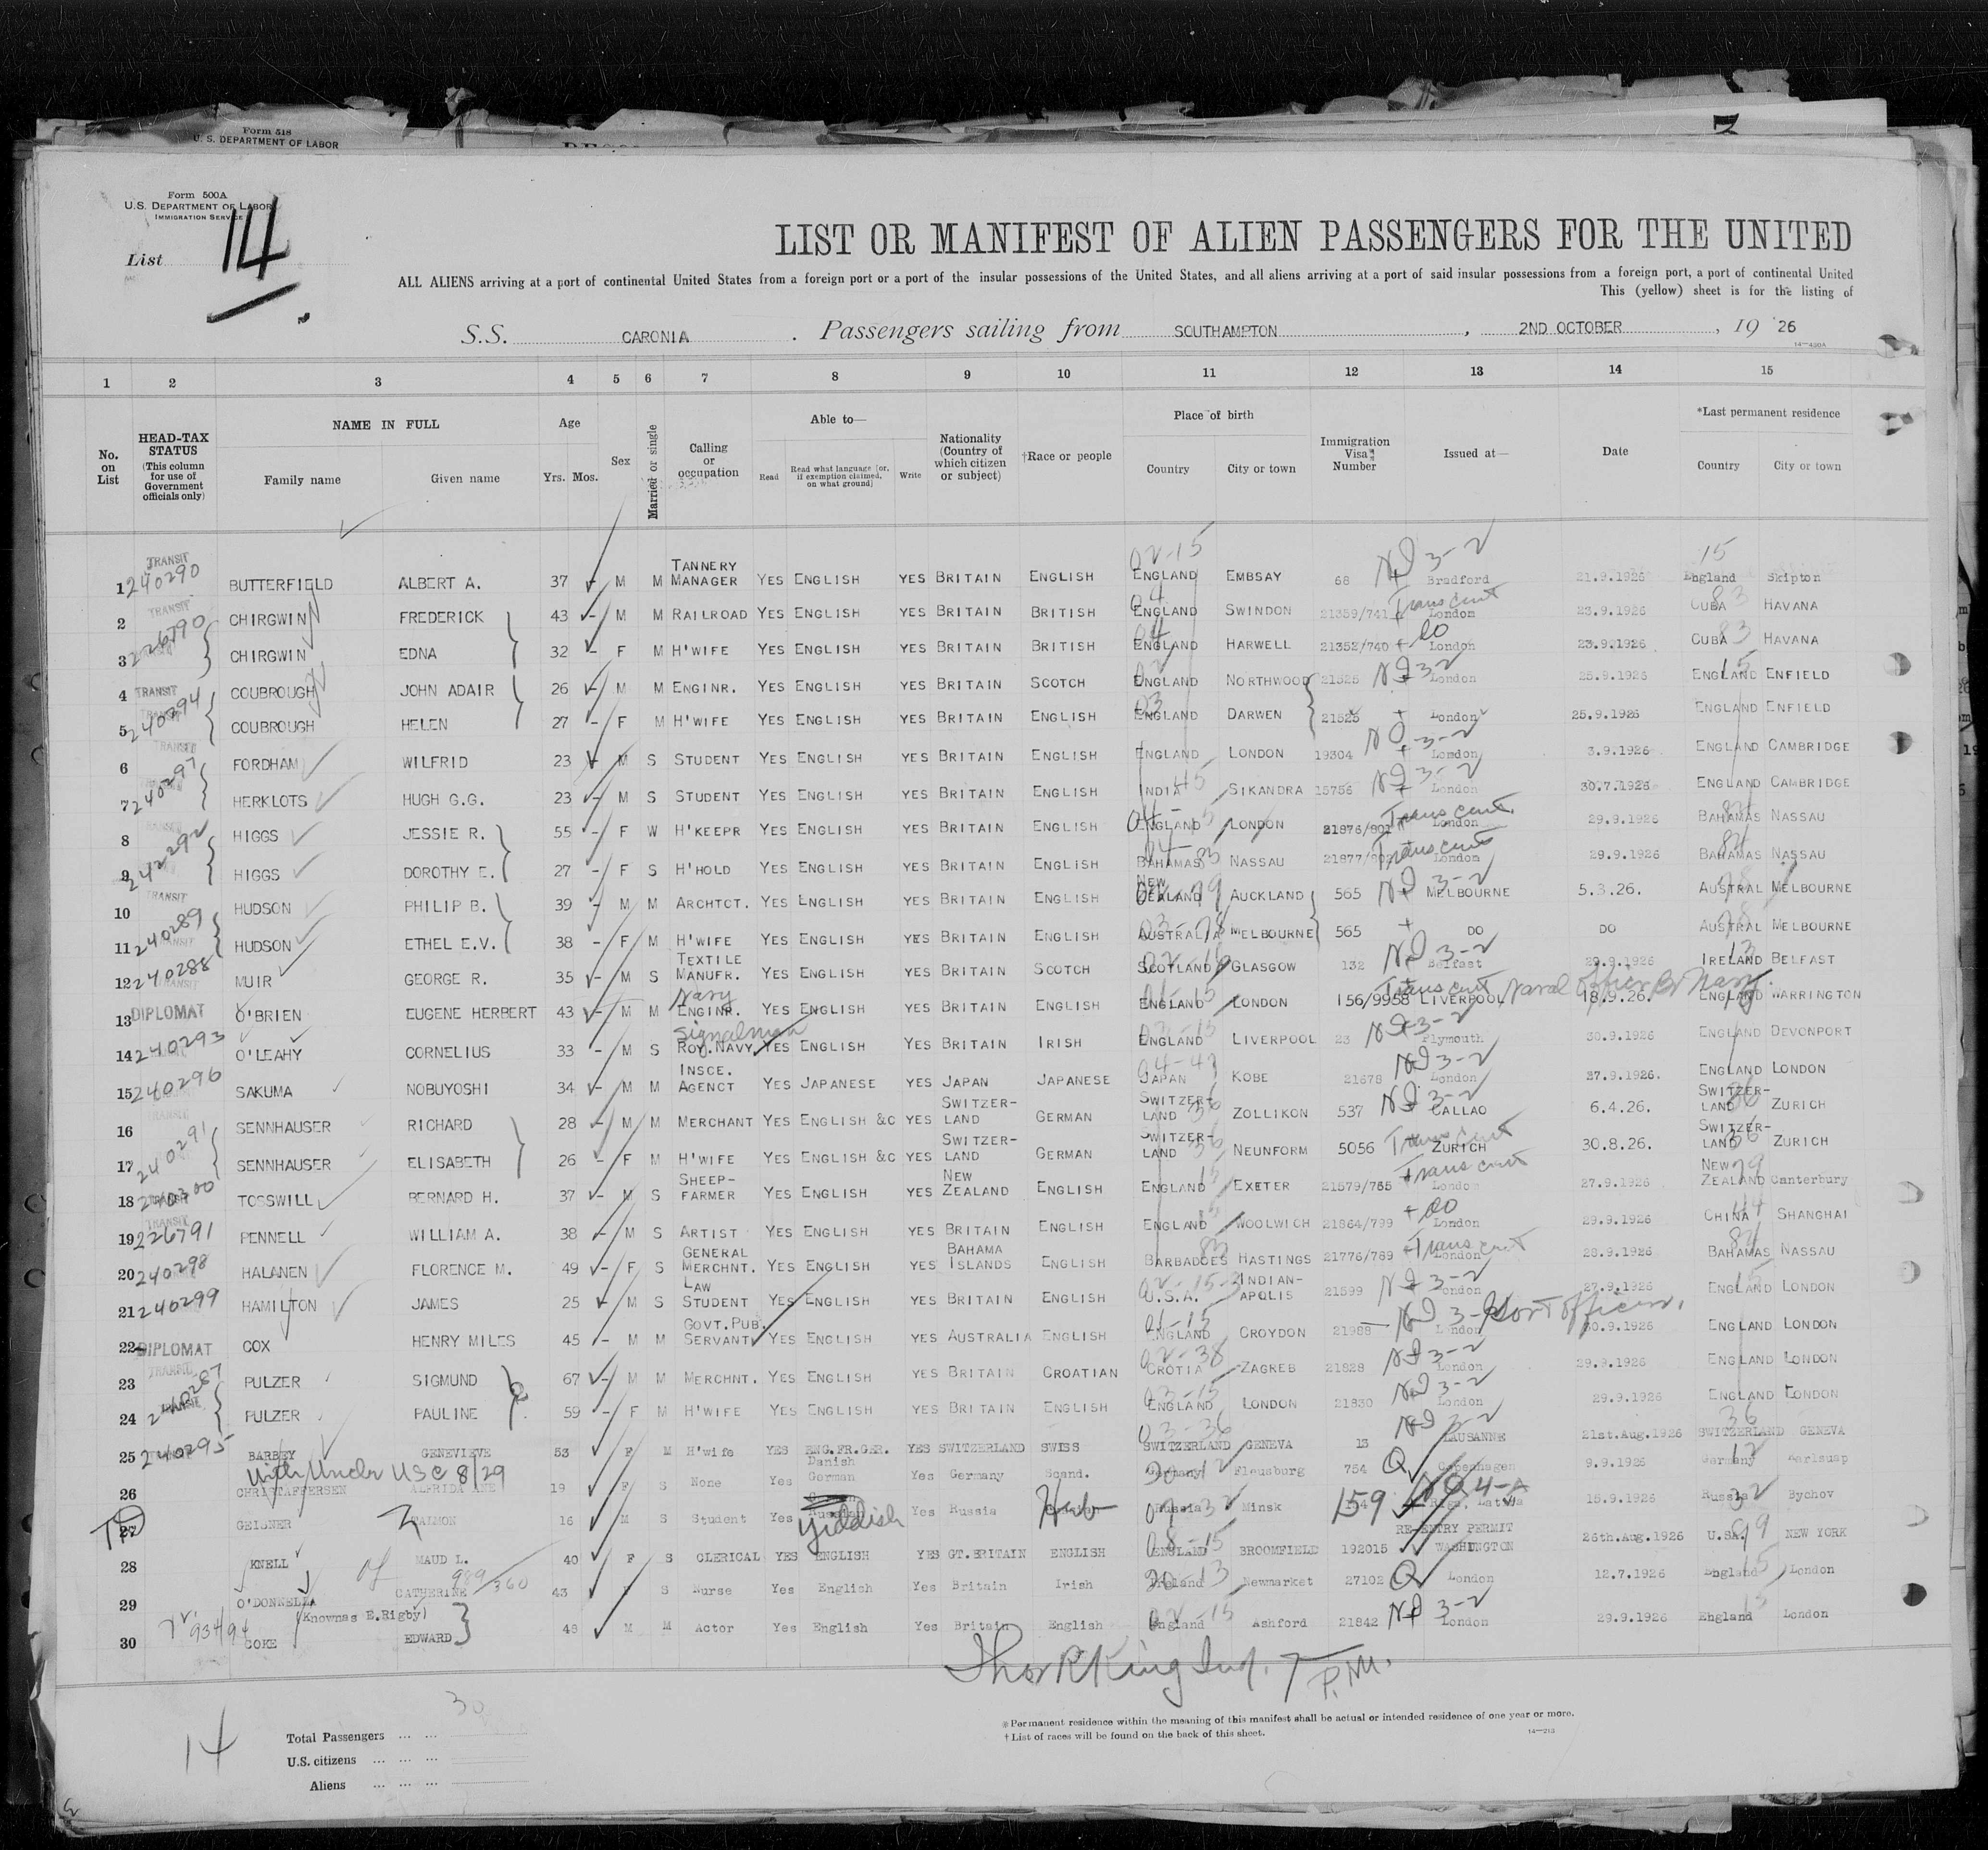 Form 518
U. S. DEPARTMENT OF LABOR
Form 500A
U.S. DEPARTMENT OF LABOR
IMMIGRATION SERVICE
List 14
LIST OR MANIFEST OF ALIEN PASSENGERS FOR THE UNITED
ALL ALIENS arriving at a port of continental United States from a foreign port or a port of the insular possessions of the United States, and all aliens arriving at a port of said insular possessions from a foreign port, a port of continental United
This (yellow) sheet is for the listing of
S.S. CARONIA . Passengers sailing from SOUTHAMPTON , 2ND OCTOBER , 19 '26
14—430A
1 2 3 4 5 6 7 8 9 10 11 12 13 14 15
No. on List
HEAD-TAX STATUS (This column for use of Government officials only)
NAME IN FULL
Family name Given name
Age
Yrs. Mos.
Sex
Married or single
Calling or occupation
Able to—
Read
Read what language (or, if exemption claimed, on what ground)
Write
Nationality (Country of which citizen or subject)
†Race or people
Place of birth
Country City or town
Immigration Visa Number
Issued at—
Date
*Last permanent residence
Country City or town
1 TRANSIT 240290 BUTTERFIELD ALBERT A. 37 M M TANNERY MANAGER YES ENGLISH YES BRITAIN ENGLISH 02-15 ENGLAND EMBSAY 68 3-2 Bradford 21.9.1926 15 England Skipton
2 TRANSIT CHIRGWIN FREDERICK 43 M M RAILROAD YES ENGLISH YES BRITAIN BRITISH 04 ENGLAND SWINDON 21359/741 Trans cert London 23.9.1926 CUBA 83 HAVANA
3 226790 CHIRGWIN EDNA 32 F M H'WIFE YES ENGLISH YES BRITAIN BRITISH 04 ENGLAND HARWELL 21352/740 do London 23.9.1926 CUBA 83 HAVANA
4 TRANSIT COUBROUGH JOHN ADAIR 26 M M ENGINR. YES ENGLISH YES BRITAIN SCOTCH ENGLAND NORTHWOOD 21525 London 25.9.1926 ENGLAND 15 ENFIELD
5 240294 COUBROUGH HELEN 27 F M H'WIFE YES ENGLISH YES BRITAIN ENGLISH 03 ENGLAND DARWEN 21525 London 25.9.1926 ENGLAND ENFIELD
6 TRANSIT FORDHAM WILFRID 23 M S STUDENT YES ENGLISH YES BRITAIN ENGLISH ENGLAND LONDON 19304 3-2 London 3.9.1926 ENGLAND CAMBRIDGE
7 240297 HERKLOTS HUGH G.G. 23 M S STUDENT YES ENGLISH YES BRITAIN ENGLISH INDIA 45 SIKANDRA 15756 3-2 London 30.7.1926 ENGLAND CAMBRIDGE
8 HIGGS JESSIE R. 55 F W H'KEEPR YES ENGLISH YES BRITAIN ENGLISH 04 ENGLAND LONDON 21876/801 Trans cert. London 29.9.1926 BAHAMAS NASSAU
9 242292 HIGGS DOROTHY E. 27 F S H'HOLD YES ENGLISH YES BRITAIN ENGLISH BAHAMAS 83 NASSAU 21877/802 Trans cert London 29.9.1926 BAHAMAS NASSAU
10 TRANSIT HUDSON PHILIP B. 39 M M ARCHTCT. YES ENGLISH YES BRITAIN ENGLISH NEW ZEALAND AUCKLAND 565 3-2 MELBOURNE 5.3.26. AUSTRAL MELBOURNE
11 240289 HUDSON ETHEL E.V. 38 F M H'WIFE YES ENGLISH YES BRITAIN ENGLISH 03-78 AUSTRALIA MELBOURNE 565 DO DO AUSTRAL MELBOURNE
12 240288 MUIR GEORGE R. 35 M S TEXTILE MANUFR. YES ENGLISH YES BRITAIN SCOTCH SCOTLAND GLASGOW 132 3-2 Belfast 29.9.1926 IRELAND 13 BELFAST
13 DIPLOMAT O'BRIEN EUGENE HERBERT 43 M M Navy ENGINR. YES ENGLISH YES BRITAIN ENGLISH ENGLAND LONDON 156/9958 Trans cert LIVERPOOL Naval Officer Br Navy. 18.9.26. ENGLAND WARRINGTON
14 240293 O'LEAHY CORNELIUS 33 M S Signalman ROY.NAVY YES ENGLISH YES BRITAIN IRISH ENGLAND LIVERPOOL 23 3-2 Plymouth 30.9.1926 ENGLAND DEVONPORT
15 240296 SAKUMA NOBUYOSHI 34 M M INSCE. AGENCT YES JAPANESE YES JAPAN JAPANESE JAPAN KOBE 21678 3-2 London 27.9.1926. ENGLAND LONDON
16 SENNHAUSER RICHARD 28 M M MERCHANT YES ENGLISH &C YES SWITZER-LAND GERMAN SWITZER-LAND 36 ZOLLIKON 537 3-2 CALLAO 6.4.26. SWITZER-LAND 36 ZURICH
17 240291 SENNHAUSER ELISABETH 26 F M H'WIFE YES ENGLISH &C YES SWITZER-LAND GERMAN SWITZER-LAND 36 NEUNFORM 5056 Trans cert ZURICH 30.8.26. SWITZER-LAND 36 ZURICH
18 240300 TOSSWILL BERNARD H. 37 M S SHEEP-FARMER YES ENGLISH YES NEW ZEALAND ENGLISH ENGLAND 15 EXETER 21579/765 Trans cert London 27.9.1926 NEW ZEALAND 79 Canterbury
19 TRANSIT 226791 PENNELL WILLIAM A. 38 M S ARTIST YES ENGLISH YES BRITAIN ENGLISH ENGLAND WOOLWICH 21864/799 do London 29.9.1926 CHINA 44 SHANGHAI
20 240298 HALANEN FLORENCE M. 49 F S GENERAL MERCHNT. YES ENGLISH YES BAHAMA ISLANDS ENGLISH BARBADOES HASTINGS 21776/789 Trans cert London 28.9.1926 BAHAMAS NASSAU
21 240299 HAMILTON JAMES 25 M S LAW STUDENT YES ENGLISH YES BRITAIN ENGLISH U.S.A. INDIAN-APOLIS 21599 3-2 London 27.9.1926 ENGLAND 15 LONDON
22 DIPLOMAT COX HENRY MILES 45 M M GOVT.PUB. SERVANT YES ENGLISH YES AUSTRALIA ENGLISH ENGLAND CROYDON 21988 London Govt Officer. 30.9.1926 ENGLAND LONDON
23 TRANSIT PULZER SIGMUND 67 M M MERCHNT. YES ENGLISH YES BRITAIN CROATIAN 02-38 CROTIA ZAGREB 21828 3-2 London 29.9.1926 ENGLAND LONDON
24 240287 PULZER PAULINE 59 F M H'WIFE YES ENGLISH YES BRITAIN ENGLISH 03-15 ENGLAND LONDON 21830 3-2 London 29.9.1926 ENGLAND LONDON
25 240295 BARBEY GENEVIEVE 53 F M H'wife YES ENG.FR.GER. YES SWITZERLAND SWISS 03-36 SWITZERLAND GENEVA 13 3-2 LAUSANNE 21st.Aug.1926 36 SWITZERLAND GENEVA
with/under USC 8/29
26 CHRISTAFFERSEN ALFRIDA ANE 19 F S None Yes Danish German Yes Germany Scand. Germany 12 Flensburg 754 Q Copenhagen 9.9.1926 Germany 12
27 GEISNER ZALMON 16 M S Student Yes Yiddish Yes Russia Heb Russia 32 Minsk 159 Riga, Latvia 15.9.1926 Russia 32 Bychov
28 KNELL MAUD L. 40 F S CLERICAL YES ENGLISH YES GT.BRITAIN ENGLISH 08-15 ENGLAND BROOMFIELD 192015 RE-ENTRY PERMIT WASHINGTON 26th.Aug.1926 U.SA. 99 NEW YORK
989/360
29 O'DONNELLA CATHERINE 43 F S Nurse Yes English Yes Britain Irish Ireland 13 Newmarket 27102 Q London 12.7.1926 England 15 London
(Knownas E.Rigby)
30 COKE EDWARD 48 M M Actor Yes English Yes Britain English 02-15 England Ashford 21842 3-2 London 29.9.1926 England 15 London
P.M.
14
Total Passengers ... ... 30
U.S. citizens ... ... ...
Aliens ... ... ...
*Permanent residence within the meaning of this manifest shall be actual or intended residence of one year or more.
†List of races will be found on the back of this sheet.
14—213